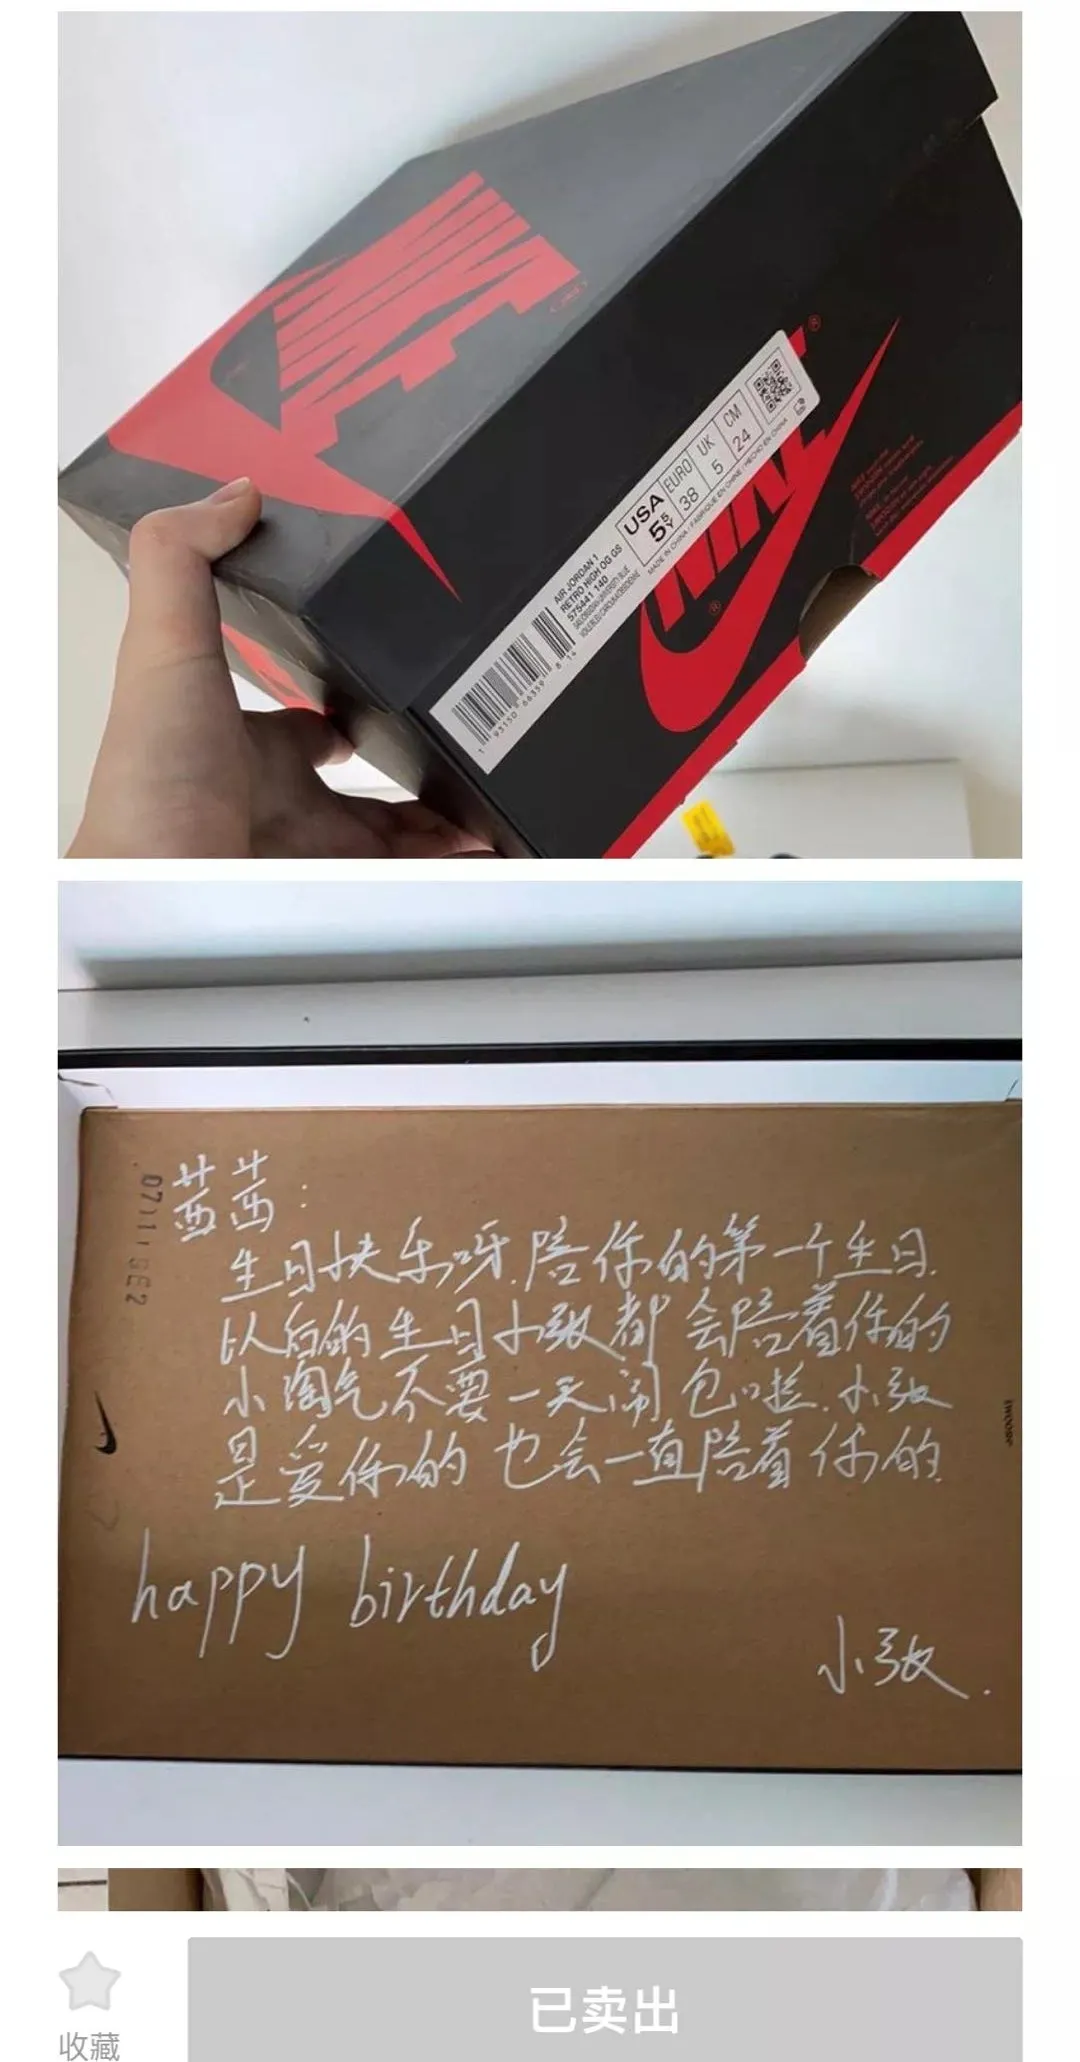 NIKE
USA
5.5Y
EURO
38
UK
5
CM
24
MADE IN CHINA / FABRIQUE EN CHINE / HECHO EN CHINA
AIR JORDAN 1
RETRO HIGH OG GS
575441 140
1 93150 66359 8 14
NIKE
®
茜茜:
生日快乐呀.陪你的第一个生日.
以后的生日小张都会陪着你的
小淘气不要一天闹包啦.小张
是爱你的也会一直陪着你的.
happy birthday
小张.
收藏
已卖出